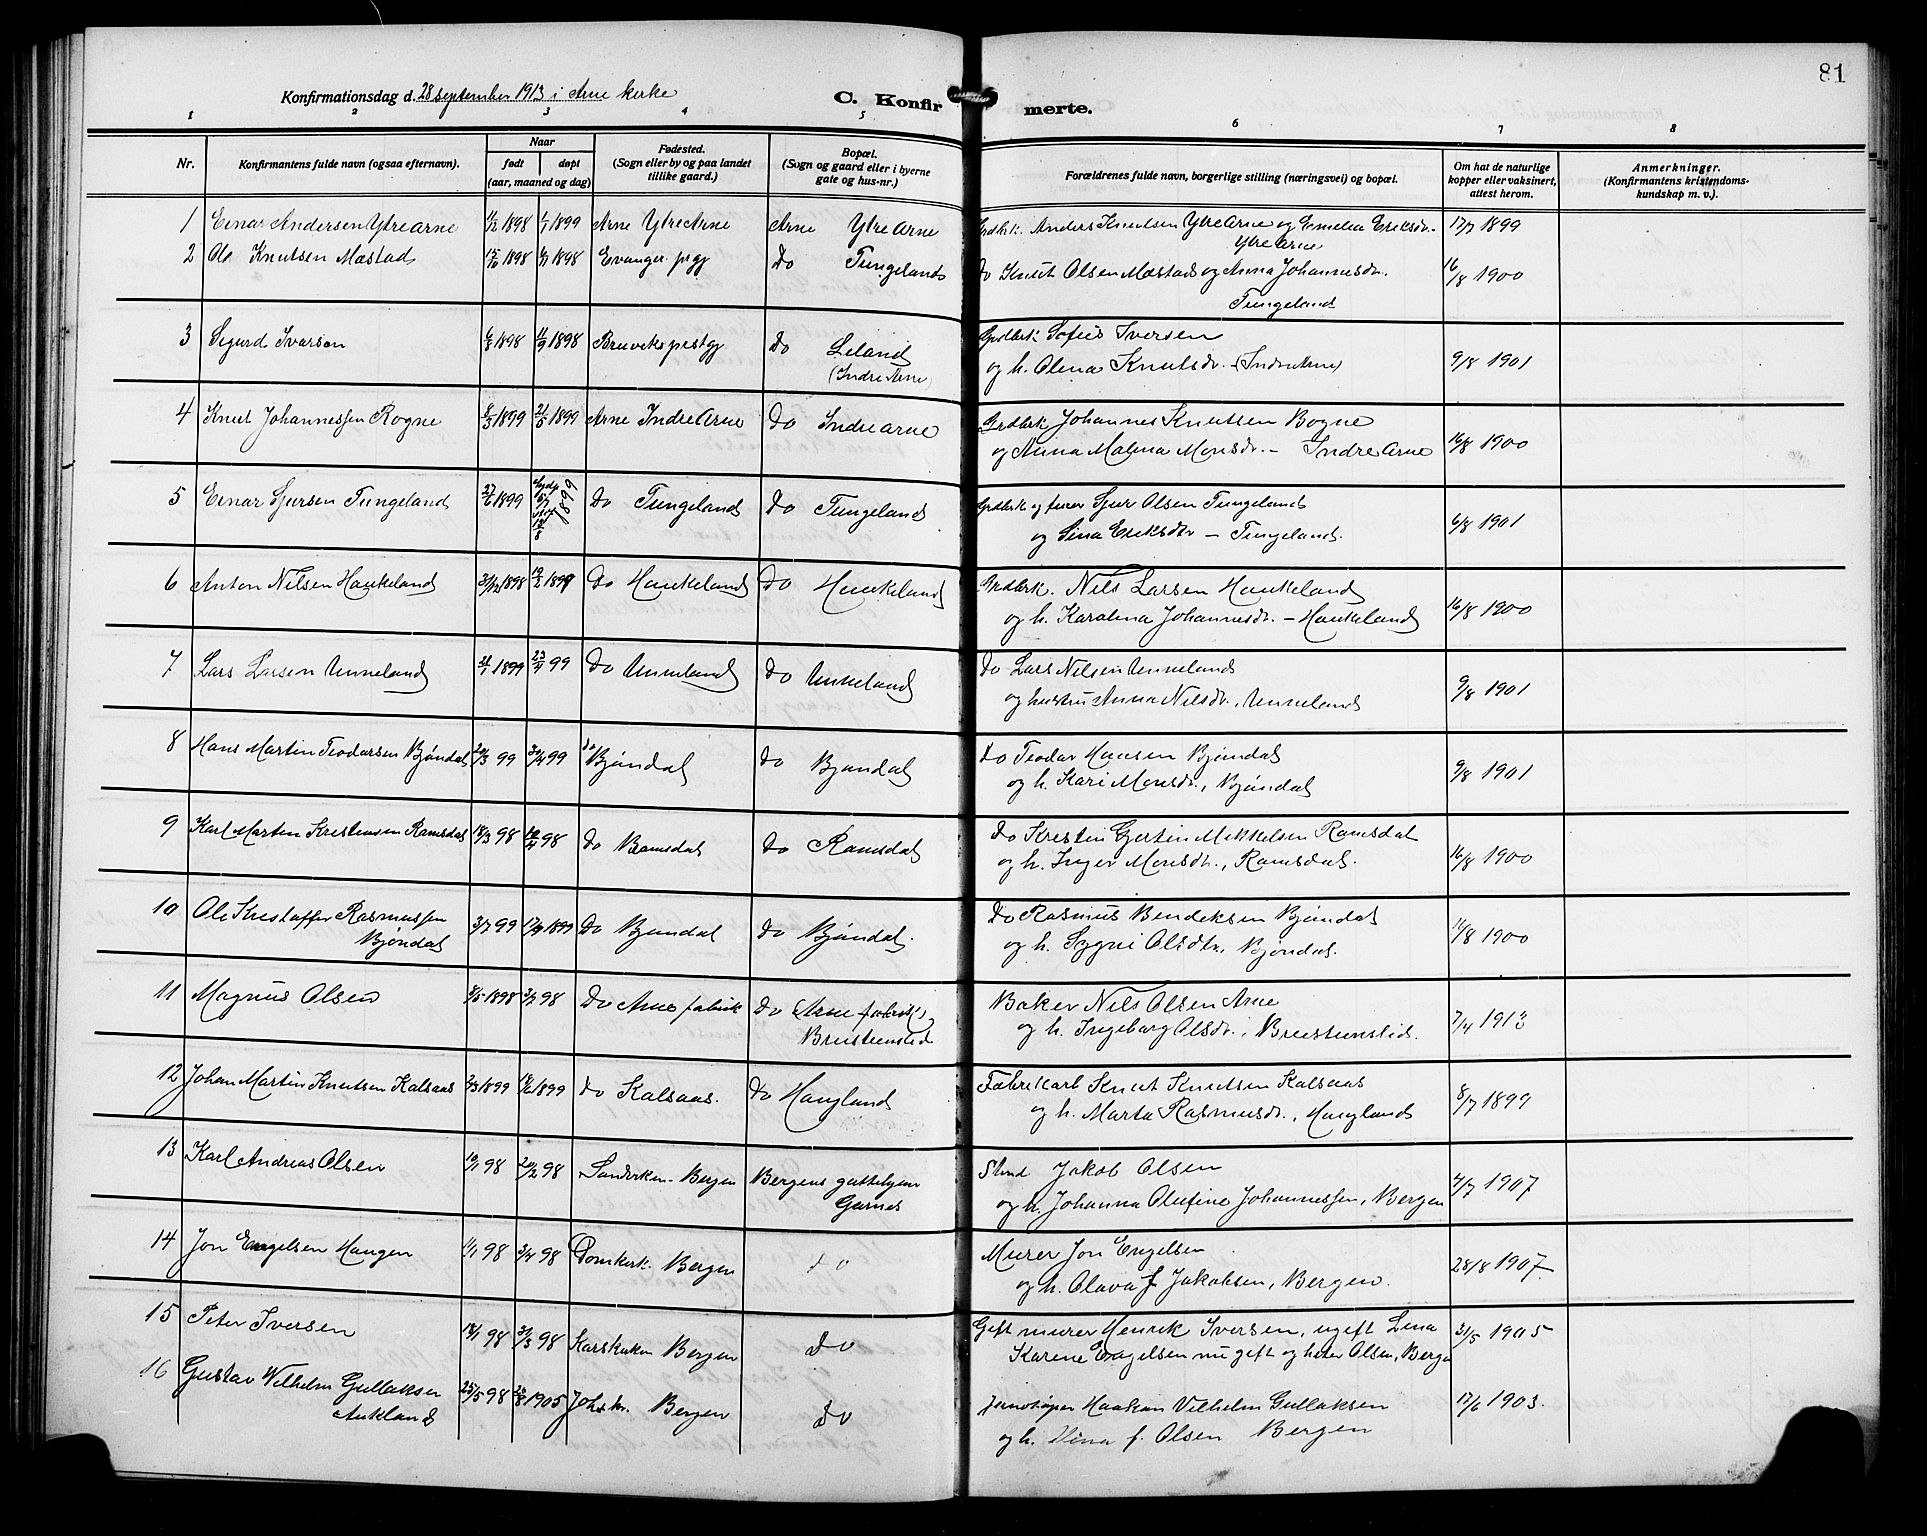 81
Konfirmationsdag d. 28 september 1913 i Arne kirke
C. Konfirmerte.
1 2 3 4 5 6 7 8
Nr.
Konfirmantens fulde navn (ogsaa efternavn).
Naar
født døpt
(aar, maaned og dag)
Fødested.
(Sogn eller by og paa landet
tillike gaard.)
Bopæl.
(Sogn og gaard eller i byerne
gate og hus-nr.)
Forældrenes fulde navn, borgerlige stilling (næringsvei) og bopæl.
Om hat de naturlige
kopper eller vaksinert,
attest herom.
Anmerkninger.
(Konfirmantens kristendoms-
kundskap m. v.).
1 Einar Andersen Ytre Arne 1/1 1899 Arne Ytre Arne Arne Ytre Arne Grdbrk. Anders Knutsen Ytre Arne og Emelia Eriksdr. 17/7 1899
Ytre Arne
2 Ole Knutsen Mæstad 15/10 1898 1898 Evanger prgj Do Tungeland Do Knut Olsen Mæstad og Anna Johannesdr. 16/8 1900
Tungeland
3 Sigurd Ivarsen 6/8 1898 11/9 1898 Bruviks prstgj Do Leland Grdbrk Sofus Iversen
(Indre Arne) og h. Olena Knutsdr. - (Indre Arne) 9/8 1901
4 Knut Johannessen Rogne 8/3 1899 21/5 1899 Arne Indre Arne Do Indre Arne Grdbrk Johannes Knutsen Rogne
og Anna Malena Monsdr. - Indre Arne 16/8 1900
5 Einar Sjursen Tungeland 27/6 1899 1899 Do Tungeland Do Tungeland Grdbrk og Sjur Olsen Tungeland
og Sina Eriksdtr - Tungeland. 6/8 1901
6 Anton Nilsen Haukeland 31/12 1898 19/2 1899 Do Haukeland Do Haukeland Grdbrk. Nils Larsen Haukeland
og h. Karolina Johannesdr. - Haukeland 16/8 1900
7 Lars Larsen Unneland 1899 23/4 99 Do Unneland Do Unneland Do Lars Nilsen Unneland
og hustru Anna Nilsdr., Unneland 9/8 1901
8 Hans Martin Teodorsen Bjøndal 20/3 99 30/4 99 do Bjøndal Do Bjøndal Do Teodor Hansen Bjøndal
og h. Kari Monsdr., Bjøndal 9/8 1901
9 Karl Martin Kristensen Ramsdal 18/3 98 98 Do Ramsdal Do Ramsdal Do Kristen Gjertin Mikkelsen Ramsdal
og h. Inger Monsdr., Ramsdal. 16/8 1900
10 Ole Kristoffer Rasmussen 3/7 99 17/9 1899 Do Bjøndal Do Bjøndal. Do Rasmus Bendiksen Bjøndal
Bjøndal og h. Sygni Olsdtr, Bjøndal. 11/8 1900
11 Magnus Olsen 1898 3/7 98 Do Arne fabrik Do (Arne fabrik), Baker Nils Olsen Arne
Breistenslid og h. Ingeborg Olsdr., Breistenslid. 7/4 1913
12 Johan Martin Knutsen Kalsaas 1899 18/6 1899 Do Kalsaas. Do Haugland Fabrikarb Knut Knutsen Kalsaas
og h. Marta Rasmusdr., Haugland 8/7 1899
13 Karl Andreas Olsen 19/1 98 20/2 98 Sandvken - Bergen Bergens guttehjem Jakob Olsen
Garnes og h. Johanna Olufine Johannessen, Bergen 4/7 1907
14 Jon Engelsen Haugen 11/1 98 3/4 98 Domkirk. Bergen do Murer Jon Engelsen
og h. Olava f Jakobsen, Bergen. 28/8 1907
15 Peter Iversen 18/1 98 3/3 98 Korskirken Bergen Do Gift murer Henrik Iversen, ugift Lina 31/5 1905
Karine Engelsen nu gift og heter Olsen, Bergen
16 Gustav Vilhelm Gullaksen 25/5 98 1905 Johskr. Bergen Do Jernstøper Haakon Vilhelm Gullaksen 17/6 1903.
Aukland og h. Dina f. Olsen Bergen